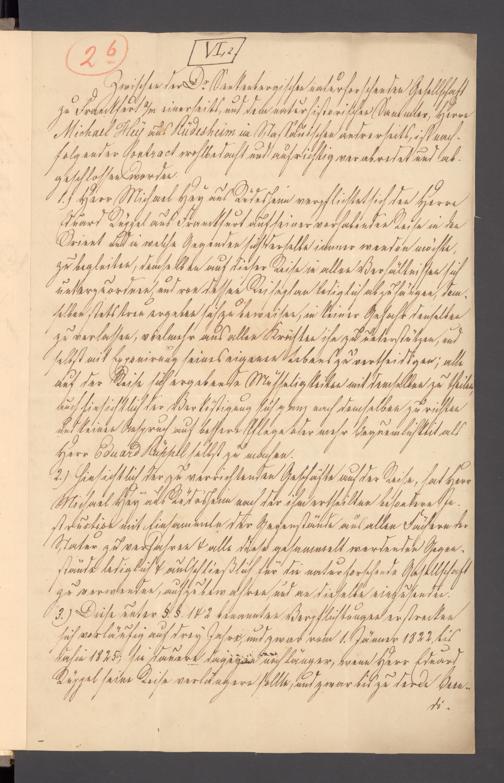 26
VI, 2.
Zwischen der Dr. Senkenbergischen naturforschenden Gesellschaft
zu Frankfurt a/m einerseits, und dem unterzeichneten Sammler, Herrn
Michael Hey aus Rüdesheim im Nassauischen andrerseits, ist nach-
folgender Contract wohlbedacht und aufrichtig verabredet und ab-
geschlossen worden
1.) Herr Michael Hey aus Rüdesheim verpflichtet sich den Herrn
Eduard Rüppel aus Frankfurt auf seiner vorhabenden Reise in den
Orient und in welche Gegenden sich derselbe immer wenden möchte
zu begleiten, demselben auf dieser Reise in allen Verhältnissen sich
unterzuordnen und von dessen Reiseplan lediglich abzuhängen, dem-
selben stets treu ergeben sich zu beweisen, in keiner Gefahr denselben
zu verlassen, vielmehr aus allen Kräften ihn zu unterstützen, und
selbst mit seines eigenen Lebens zu vertheidigen; alle
auf der Reise sich ergebende Mühseligkeiten mit demselben zu theilen,
auch hinsichtlich der Verköstigung sich ganz nach demselben zu richten
und keinen Anspruch auf bessere Pflege oder mehr Bequemlichkeit als
Herr Eduard Rüppell selbst zu machen.
2.) Hinsichtlich der zu verrichtenden Geschäfte auf der Reise, hat Herr
Michael Hey aus Rüdesheim nach der ihm ertheilten besondern In-
struction mit Einsammeln der Gegenstände aus allen Fächern der
Natur zu verfahren & alle diese gesammelt werdenden Gegen-
stände lediglich & ausschließlich für die naturforschende Gesellschaft
zu verwenden, aufzubewahren und an dieselbe einzusenden.
3.) Diese unter §. § 1 & 2 benannten Verpflichtungen erstrecken
sich vorläufig auf drey Jahre und zwar vom 1. Jänner 1822, bis
dahin 1825; sie dauern dagegen auch länger, wenn Herr Eduard
Rüppel seine Reise verlängern sollte, und zwar bis zu deren Been-
di-